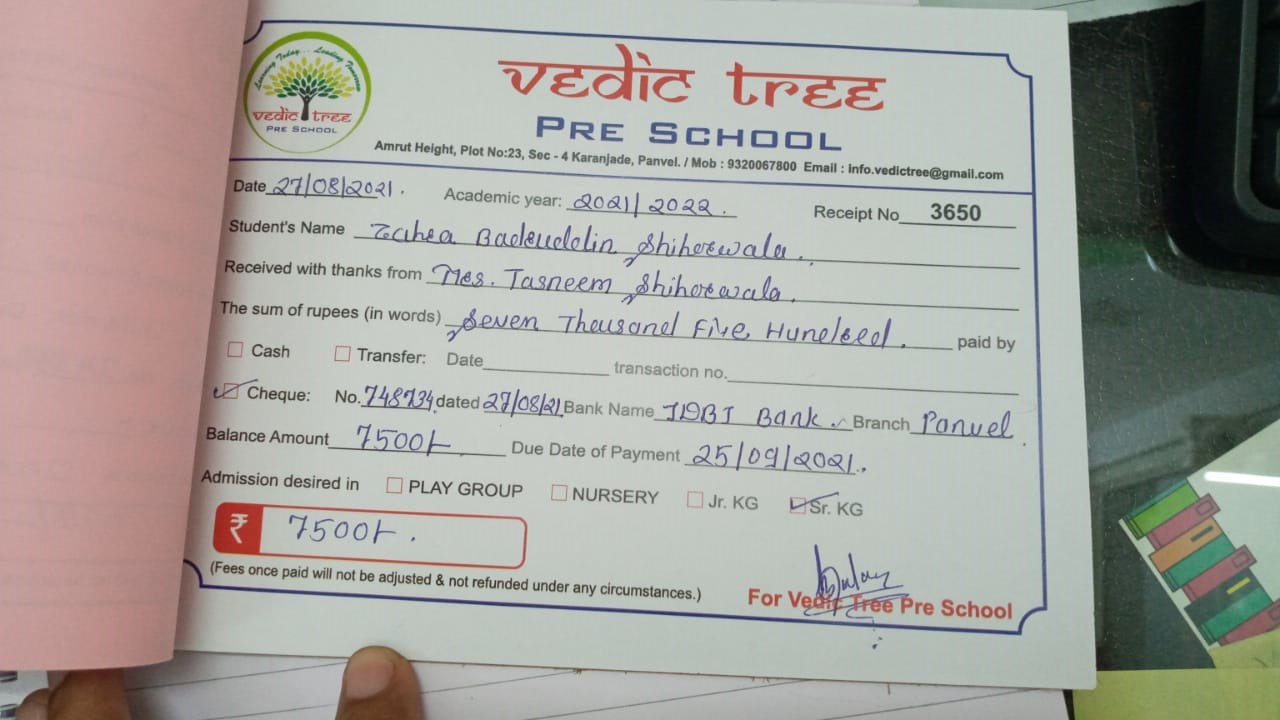 Learning Today... Leading Tomorrow
VEDIC TREE
PRE SCHOOL
VEDIC TREE
PRE SCHOOL
Amrut Height, Plot No:23, Sec - 4 Karanjade, Panvel. / Mob : 9320067800 Email : info.vedictree@gmail.com
Date 27/08/2021. Academic year: 2021/2022. Receipt No 3650
Student's Name Zahra Badruddin Shihorwala.
Received with thanks from Mrs. Tasneem Shihorwala.
The sum of rupees (in words) Seven Thousand Five Hundred. paid by
Cash Transfer: Date transaction no.
Cheque: No. 748734 dated 27/08/21 Bank Name IDBI Bank. Branch Panvel.
Balance Amount 7500/- Due Date of Payment 25/09/2021.
Admission desired in PLAY GROUP NURSERY Jr. KG Sr. KG
₹ 7500/- .
(Fees once paid will not be adjusted & not refunded under any circumstances.)
For Vedic Tree Pre School